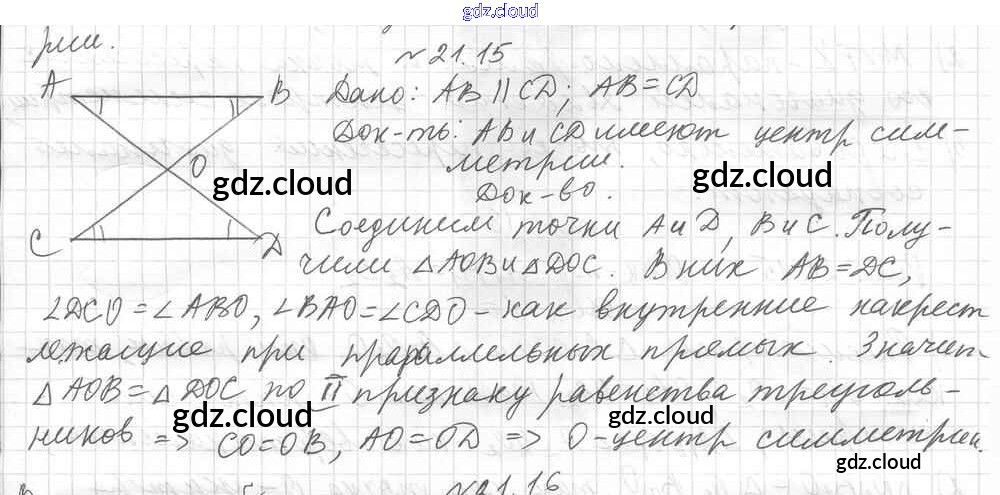 gdz.cloud
рии.
№21.15
A B Дано: AB || CD; AB = CD
Док-ть: AB и CD имеют центр сим-
метрии.
O
gdz.cloud gdz.cloud
Док-во.
C D Соединим точки A и D, B и C. Полу-
чили △AOB и △DOC. В них AB = DC,
∠DCO = ∠ABO, ∠BAO = ∠CDO - как внутренние накрест
лежащие при параллельных прямых. Значит
△AOB = △DOC по II признаку равенства треуголь-
gdz.cloud gdz.cloud
ников => CO = OB, AO = OD => O - центр симметрии.
gdz.cloud
№21.16